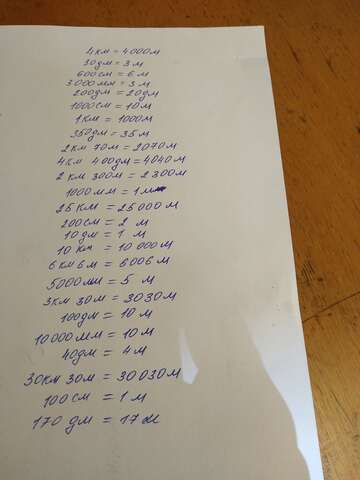 4км = 4000м
30дм = 3 м
600см = 6 м
3000мм = 3 м
200дм = 20дм
1000см = 10м
1км = 1000м
350дм = 35м
2км 70м = 2070м
4км 400дм = 4040м
2 км 300м = 2300м
1000мм = 1м
25км = 25000м
200см = 2 м
10дм = 1 м
10 км = 10 000м
6км 6м = 6006м
5000мм = 5 м
3км 30м = 3030м
100дм = 10 м
10 000мм = 10м
40дм = 4м
30км 30м = 30030м
100см = 1 м
170 дм = 17м